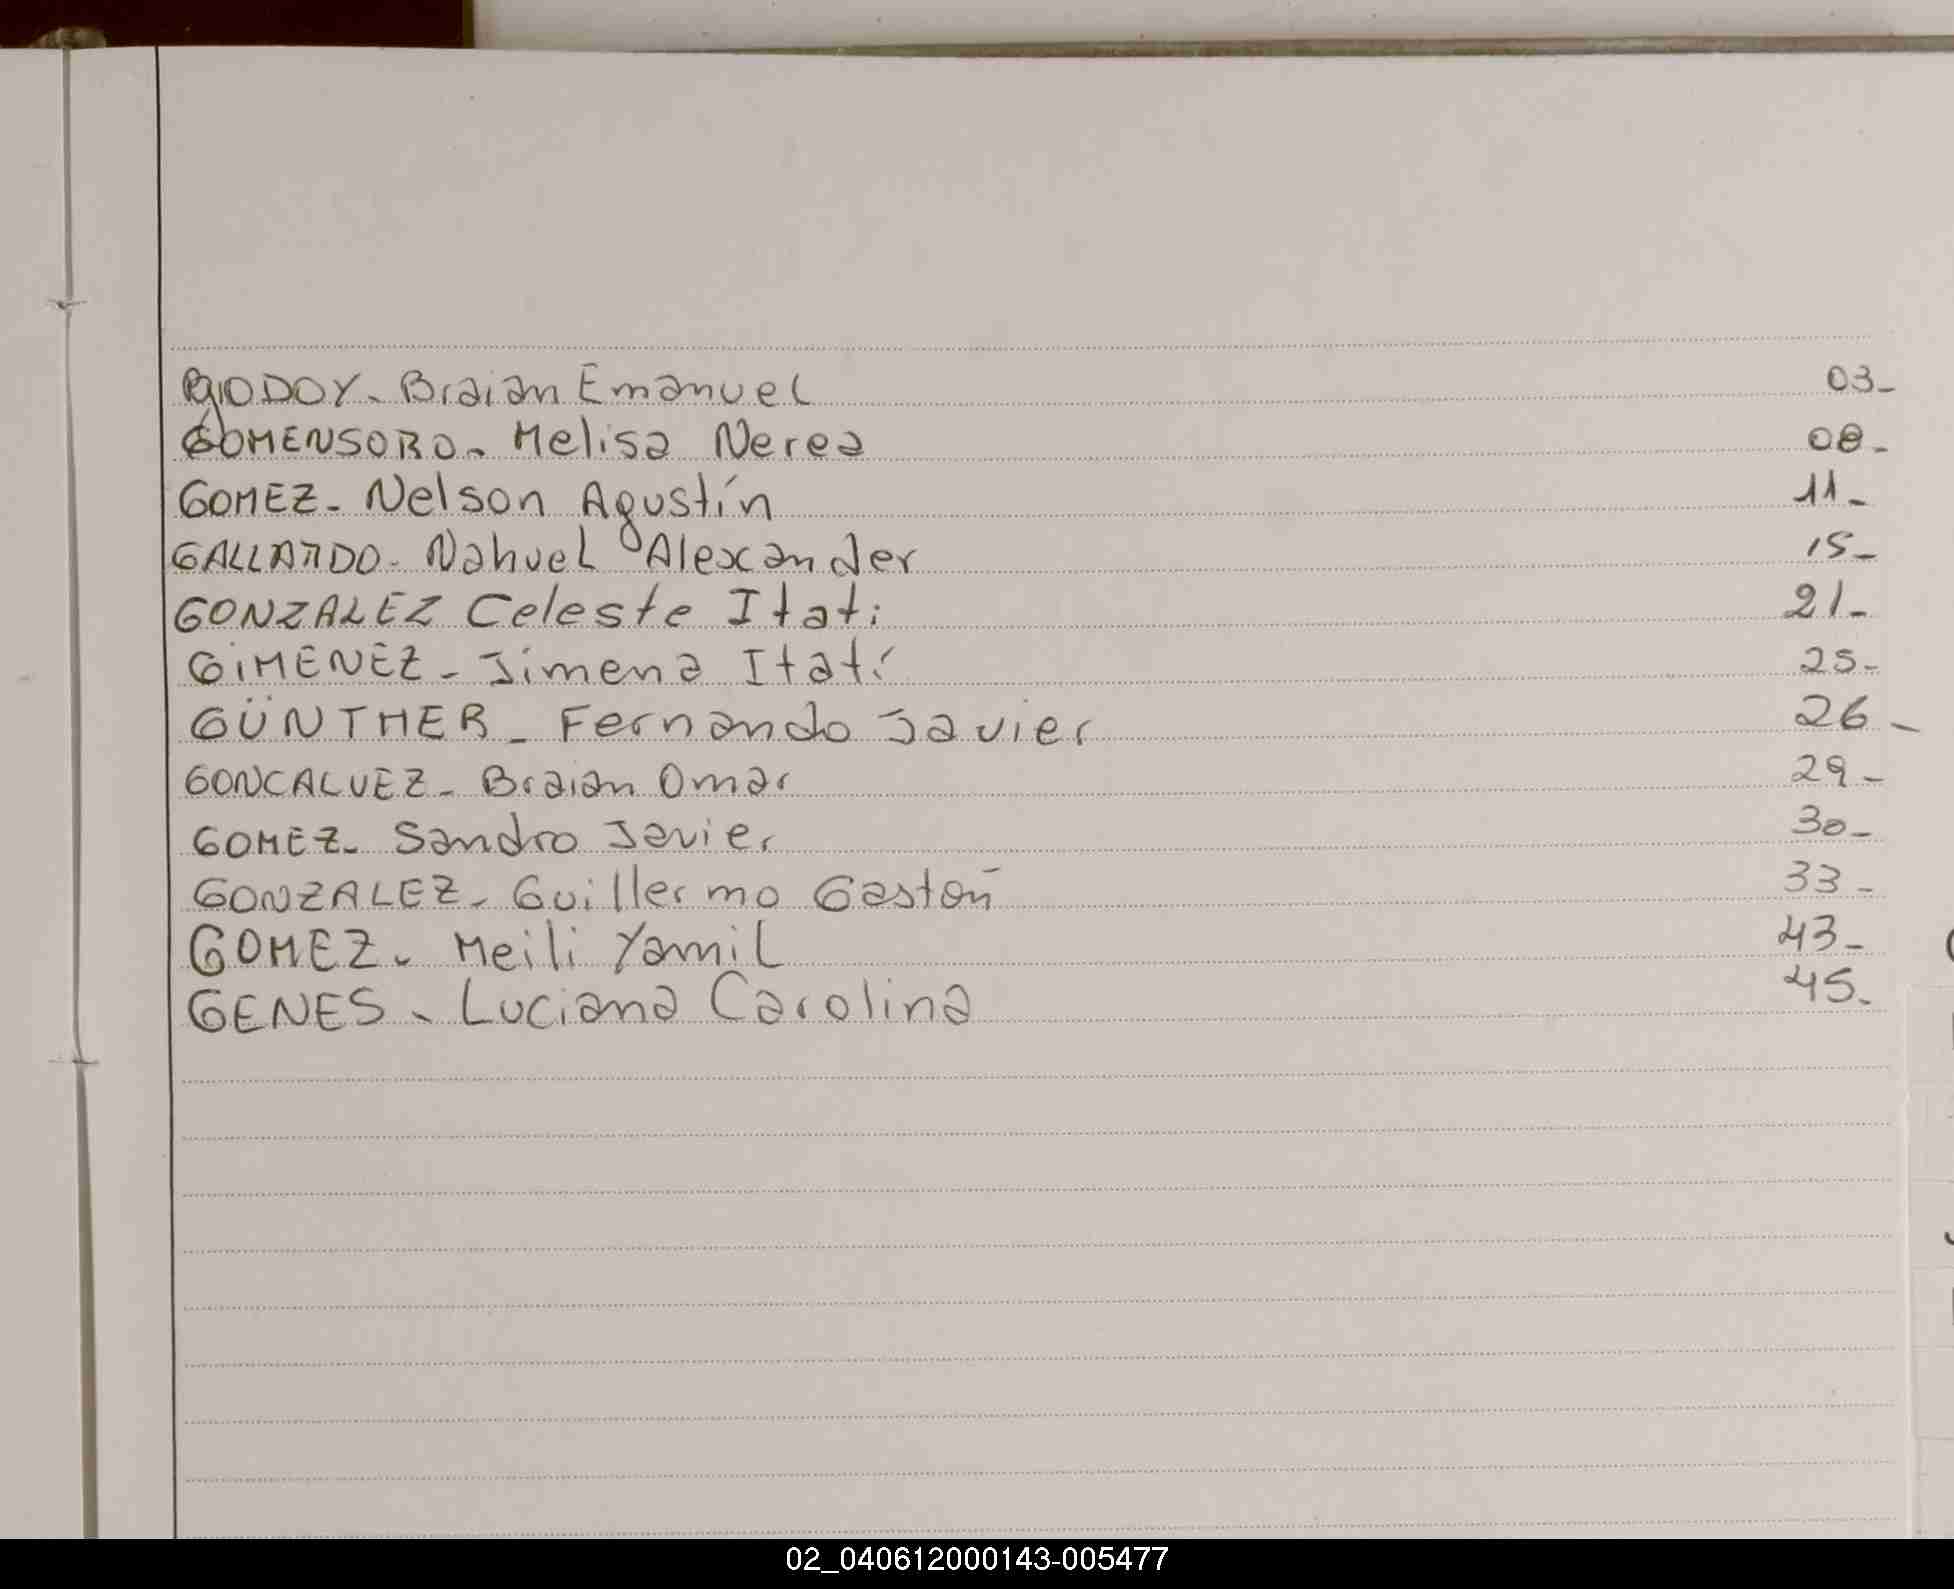 GODOY. Braian Emanuel 03-
GOMENSORO. Melisa Nerea 08-
GOMEZ- Nelson Agustín 11-
GALLARDO- Nahuel Alexander 15-
GONZALEZ Celeste Itati 21-
GiMENEZ- Jimena Itatí 25-
GÜNTHER- Fernando Javier 26-
GONCALVEZ- Braian Omar 29-
GOMEZ- Sandro Javier 30-
GONZALEZ- Guillermo Gastón 33-
GOMEZ. Meili Yamil 43-
GENES- Luciana Carolina 45-
02_040612000143-005477